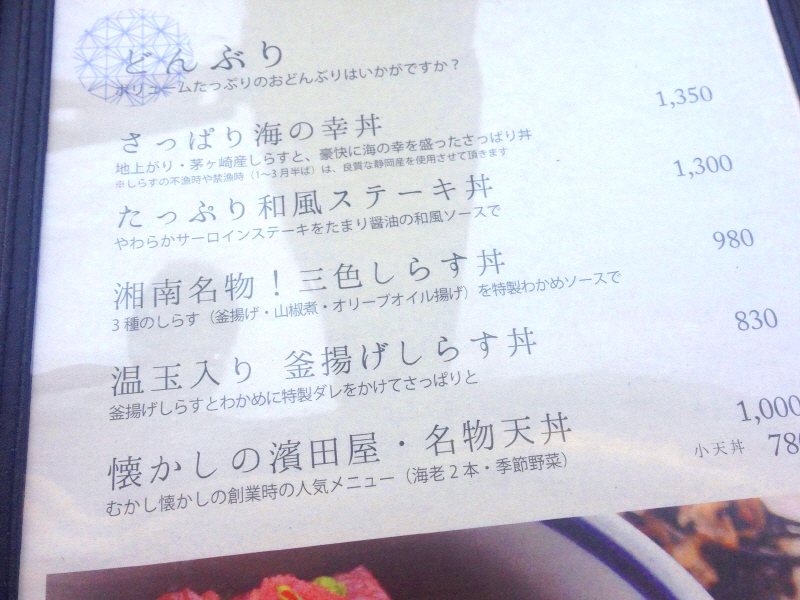 どんぶり
ボリュームたっぷりのおどんぶりはいかがですか？
さっぱり海の幸丼 1,350
地上がり・茅ヶ崎産しらすと、豪快に海の幸を盛ったさっぱり丼
※しらすの不漁時や禁漁時（1〜3月半ば）は、良質な静岡産を使用させて頂きます
たっぷり和風ステーキ丼 1,300
やわらかサーロインステーキをたまり醤油の和風ソースで
湘南名物！三色しらす丼 980
3種のしらす（釜揚げ・山椒煮・オリーブオイル揚げ）を特製わかめソースで
温玉入り 釜揚げしらす丼 830
釜揚げしらすとわかめに特製ダレをかけてさっぱりと
懐かしの濱田屋・名物天丼 1,000
むかし懐かしの創業時の人気メニュー（海老2本・季節野菜） 小天丼 780